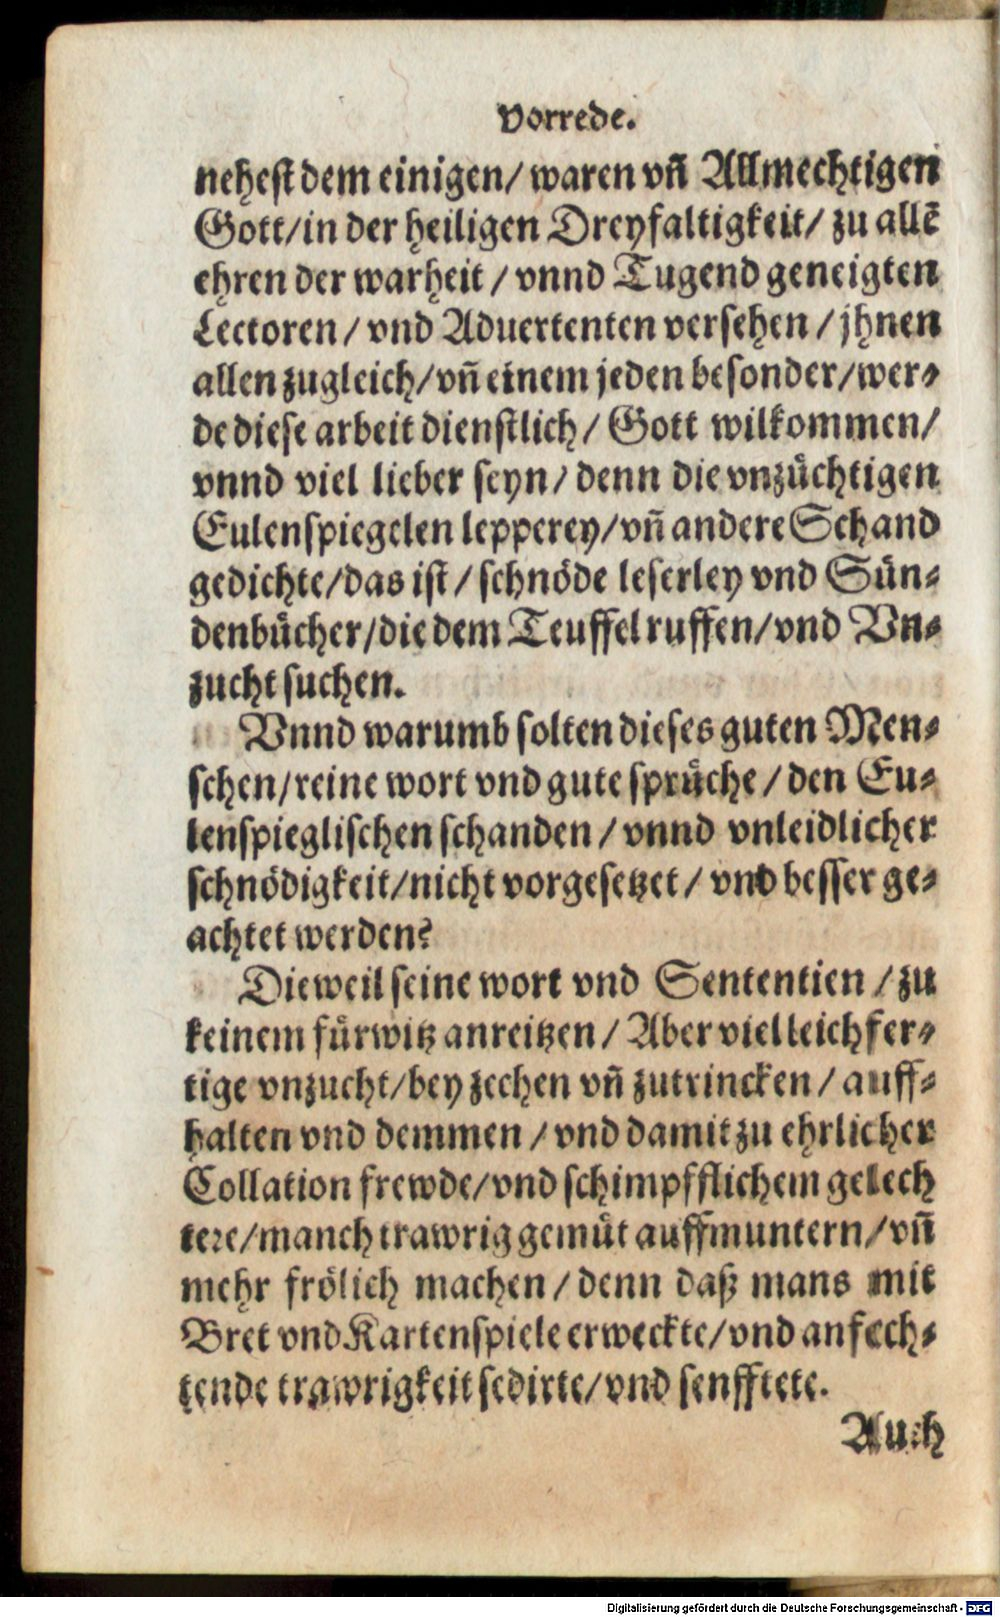 Vorrede.
nehest dem einigen/ waren vñ Allmechtigen
Gott/in der heiligen Dreyfaltigkeit/ zu allē
ehren der warheit / vnnd Tugend geneigten
Lectoren / vnd Aduertenten versehen / jhnen
allen zugleich/vñ einem jeden besonder/wer⸗
de diese arbeit dienstlich/ Gott wilkommen/
vnnd viel lieber seyn/ denn die vnzuͤchtigen
Eulenspiegelen lepperey/vñ andere Schand
gedichte/das ist / schnoͤde leserley vnd Suͤn⸗
denbuͤcher/die dem Teuffel ruffen/vnd Vn⸗
zucht suchen.
Vnnd warumb solten dieses guten Men⸗
schen/reine wort vnd gute spruͤche / den Eu⸗
lenspieglischen schanden / vnnd vnleidlicher
schnoͤdigkeit/nicht vorgesetzet / vnd besser ge⸗
achtet werden?
Dieweil seine wort vnd Sententien / zu
keinem fuͤrwitz anreitzen / Aber viel leichfer⸗
tige vnzucht/bey zechen vñ zutrincken / auff⸗
halten vnd demmen / vnd damit zu ehrlicher
Collation frewde/vnd schimpfflichem gelech
tere/manch trawrig gemuͤt auffmuntern/vñ
mehr froͤlich machen / denn daß mans mit
Bret vnd Kartenspiele erweckte/vnd anfech⸗
tende trawrigkeit sedirte/vnd senfftete.
Auch
Digitalisierung gefördert durch die Deutsche Forschungsgemeinschaft - DFG